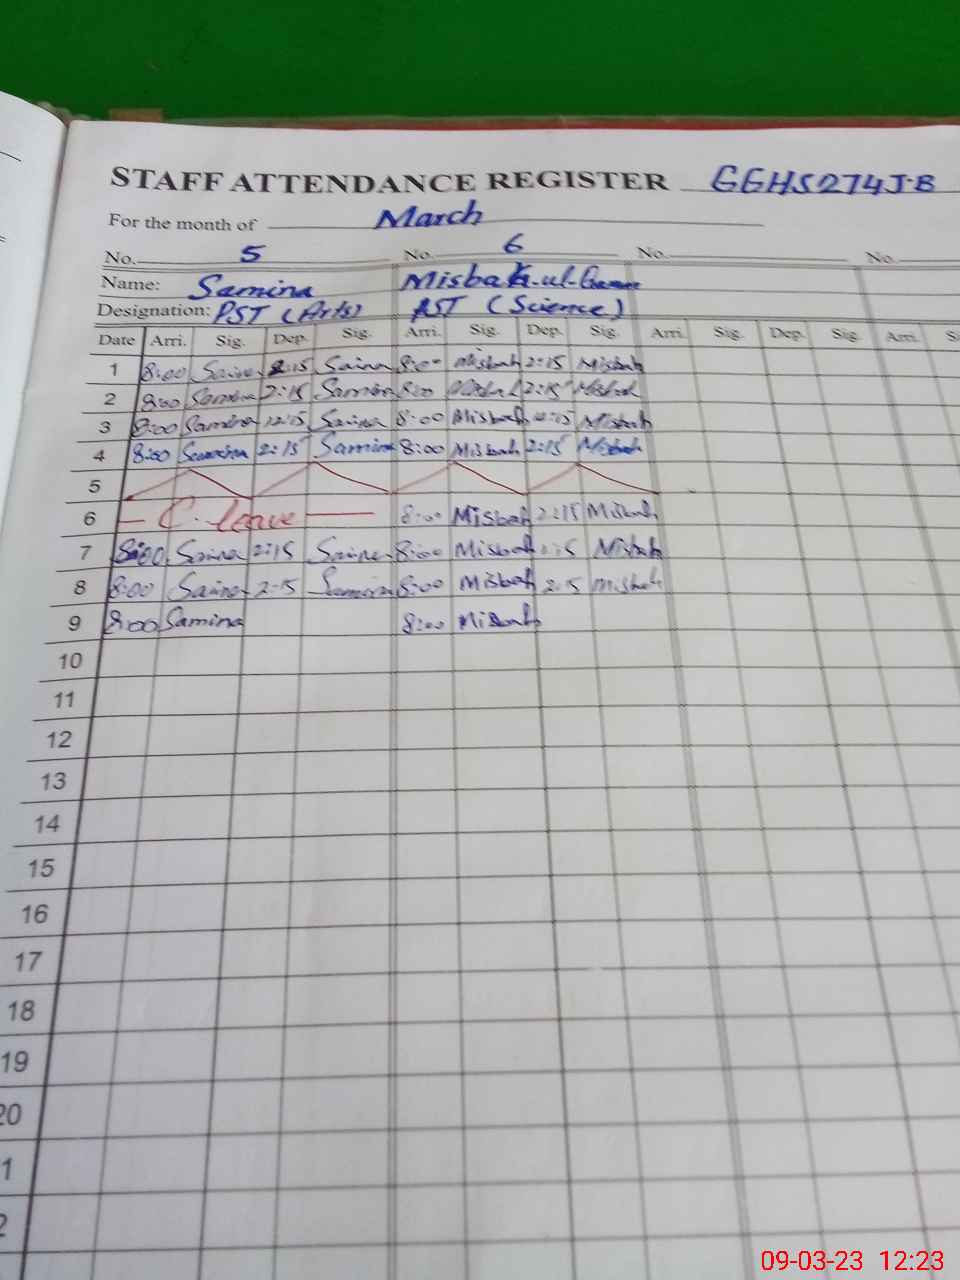 STAFF ATTENDANCE REGISTER GGHS274J-B
For the month of March
No. 5 No. 6 No. No.
Name: Samina Misbah-ul-
Designation: PST (Arts) PST (Science)
Date Arri. Sig. Dep. Sig. Arri. Sig. Dep. Sig. Arri. Sig. Dep. Sig. Arri. S
1 8:00 Samina 2:15 Samina 8:00 Misbah 2:15 Misbah
2 8:00 Samina 2:15 Samina 8:00 Misbah 2:15 Misbah
3 8:00 Samina 12:15 Samina 8:00 Misbah 12:15 Misbah
4 8:00 Samina 2:15 Samina 8:00 Misbah 2:15 Misbah
5
6 C. leave 8:00 Misbah 2:15 Misbah
7 8:00 Samina 2:15 Samina 8:00 Misbah 2:15 Misbah
8 8:00 Samina 2:15 Samina 8:00 Misbah 2:15 Misbah
9 8:00 Samina 8:00 Misbah
10
11
12
13
14
15
16
17
18
19
20
1
2
09-03-23 12:23